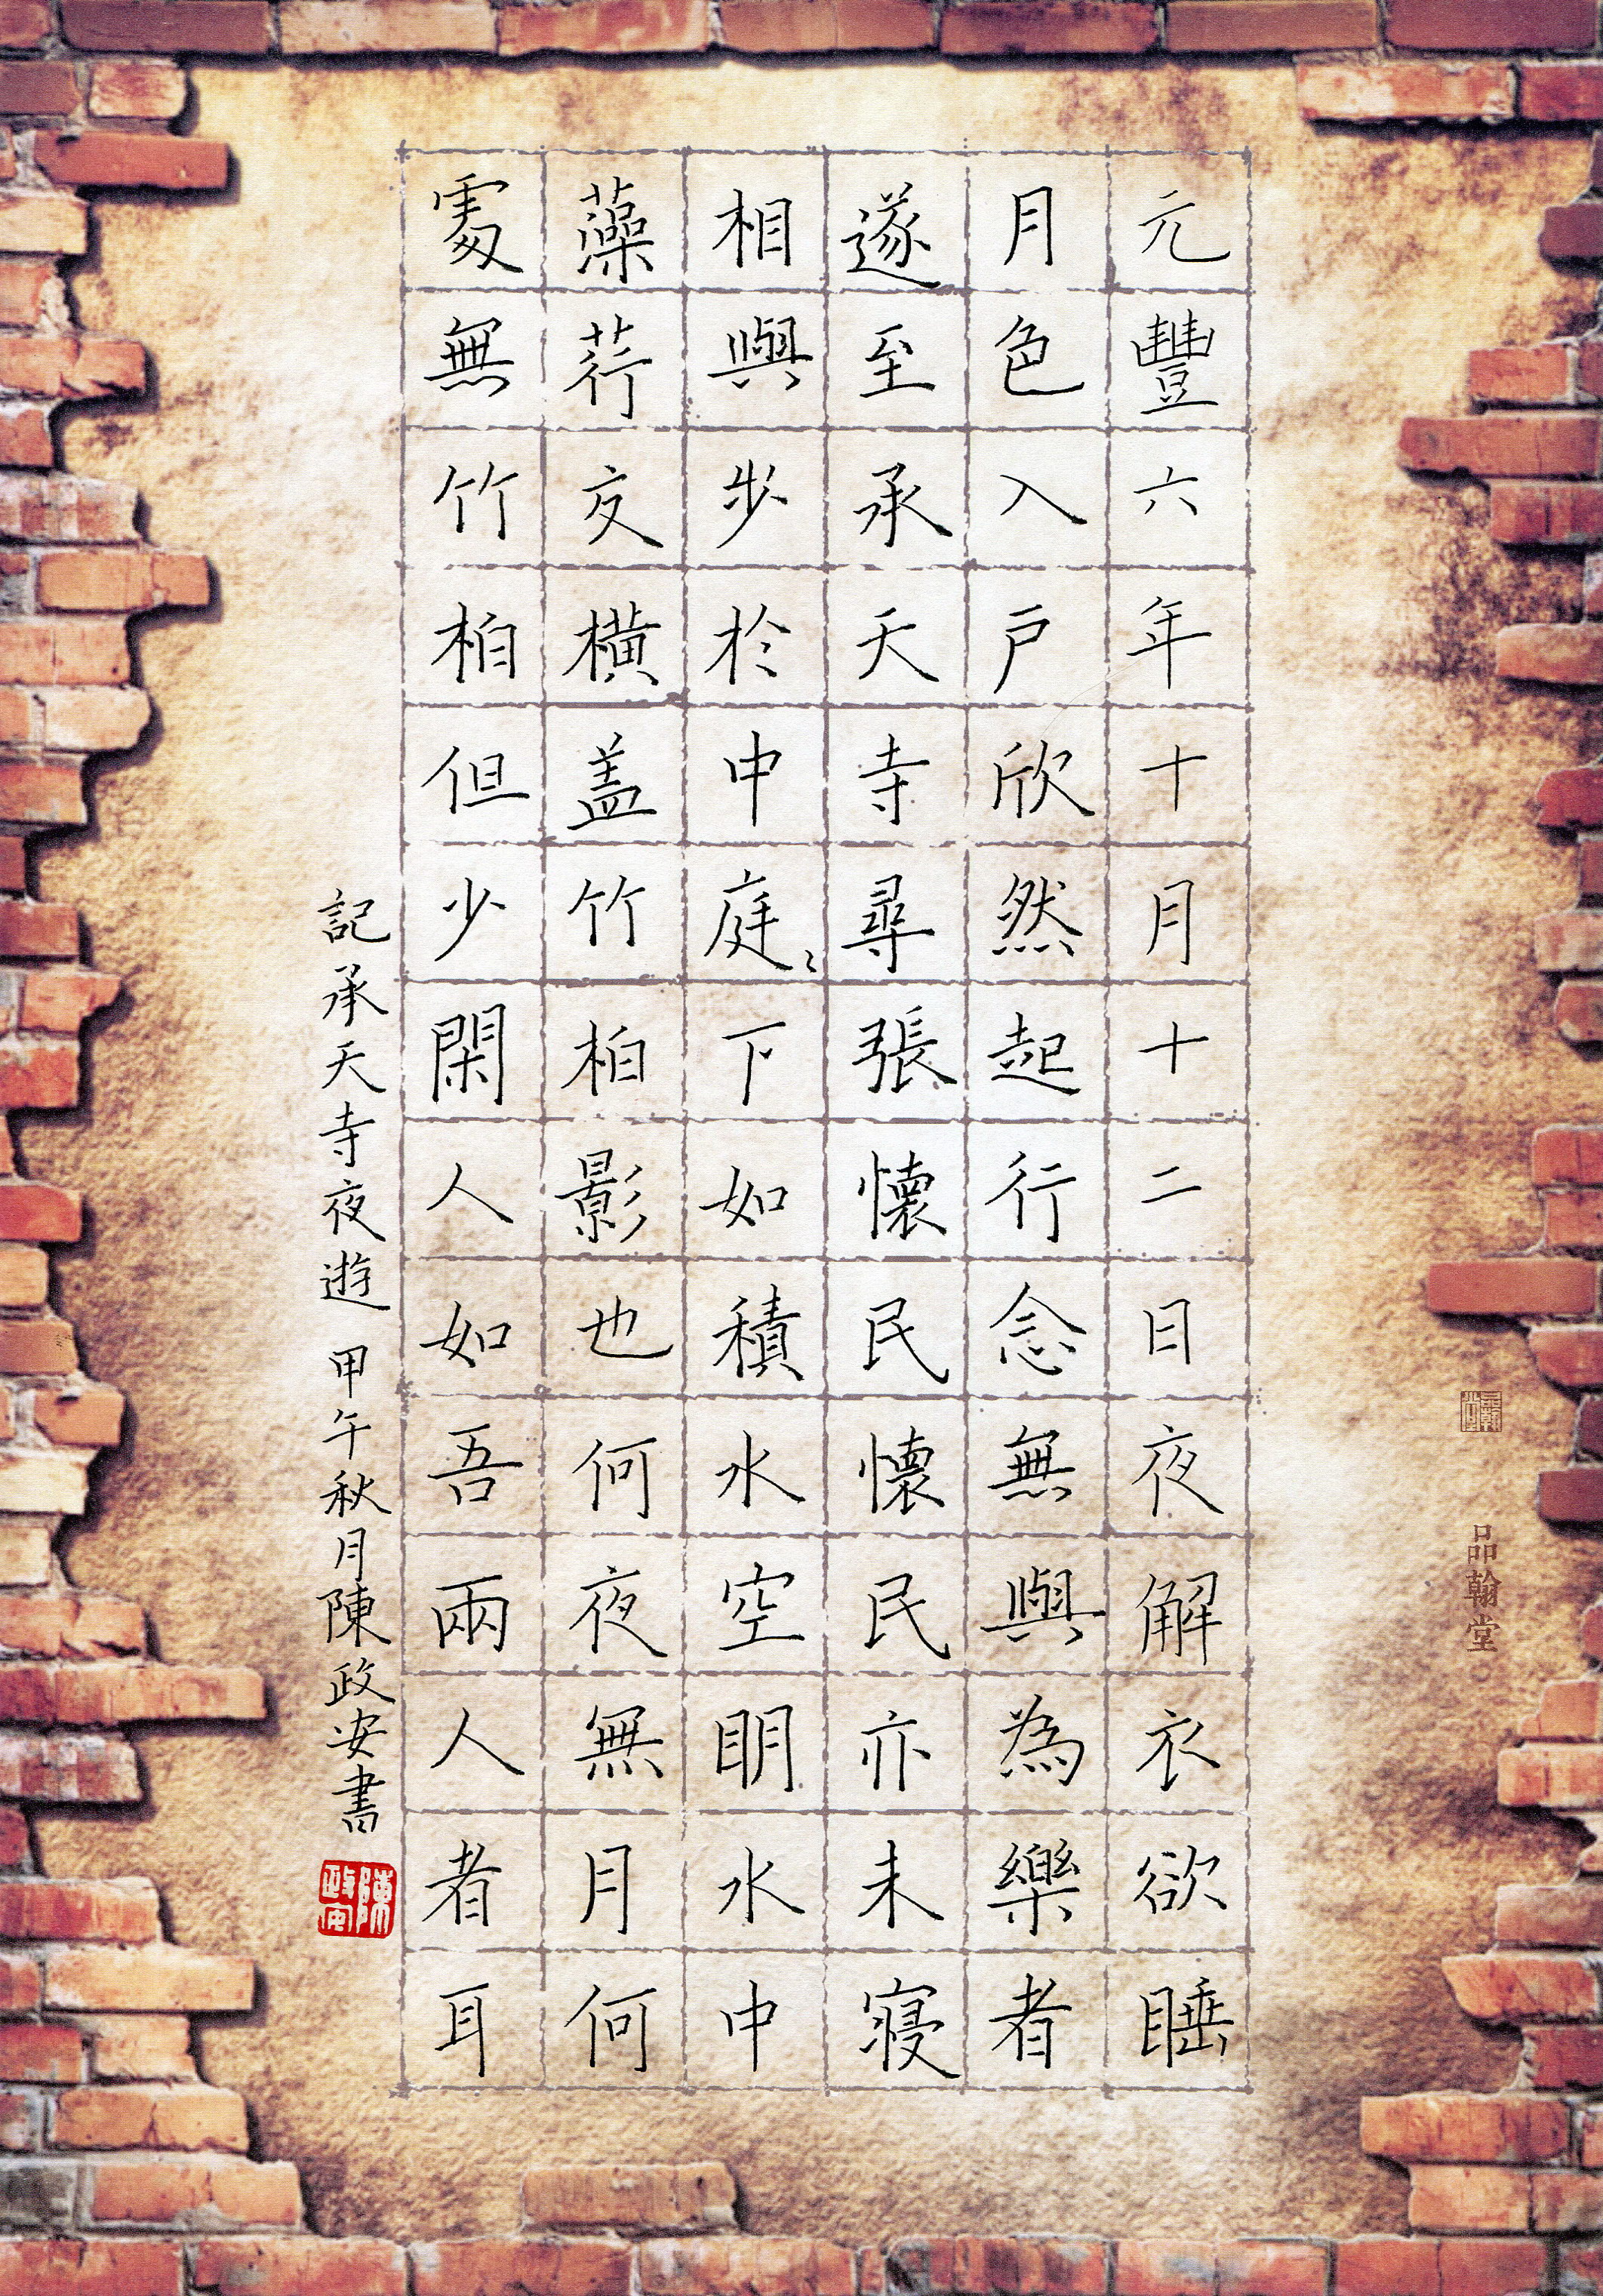 元豐六年十月十二日夜解衣欲睡
月色入戶欣然起行念無與為樂者
遂至承天寺尋張懷民懷民亦未寢
相與步於中庭〻下如積水空明水中
藻荇交橫蓋竹柏影也何夜無月何
處無竹柏但少閑人如吾兩人者耳
記承天寺夜遊 甲午秋月陳政安書
陳政安
品翰堂